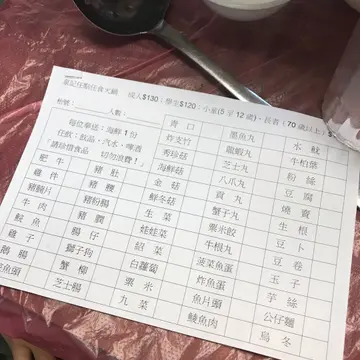 梁記任點任食火鍋 成人$130；學生$120；小童(5至12歲)、長者(70歲以上)$
枱號： 人數：
每位奉送：海鮮1份
任飲：飲品、汽水、啤酒
「請珍惜食品 切勿浪費！」
青口 墨魚丸 水魷
炸支竹 龍蝦丸 牛柏葉
秀珍菇 芝士丸 粉絲
肥牛 豬肚 海鮮菇 八爪丸 豆腐
雞件 豬𦟌 金菇 貢丸 燒賣
豬腕片 豬粉腸 鮮冬菇 蟹子丸 生根
牛肉 豬膶 生菜 粟米餃 豆卜
鯇魚 腸仔 娃娃菜 牛根丸 豆卷
雞子 獅子狗 紹菜 菠菜魚蛋 玉子
鵝腸 蟹柳 白蘿蔔 炸魚蛋 芋絲
魚頭 芝士腸 粟米 魚片頭 公仔麵
九菜 鯪魚肉 烏冬